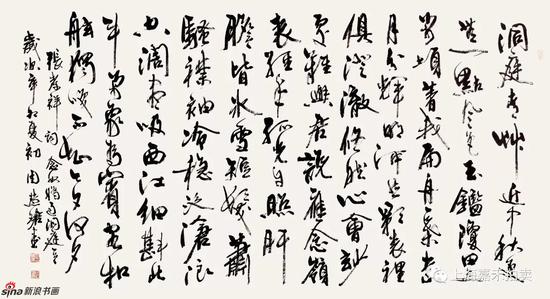 洞庭青草近中秋更
無一點風色玉鑑瓊田
三万頃著我扁舟一葉素
月分輝明河共影表裡
俱澄澈悠然心會妙
處難與君說應念嶺
表經年孤光自照肝
膽皆冰雪短髮蕭
騷襟袖冷穩泛滄浪
空闊盡吸西江細斟北
斗萬象為賓客扣
舷獨嘯不知今夕何夕
張孝祥詞念奴嬌過洞庭
歲次辛卯夏初周慧珺書
sina新浪书画
上海嘉禾拍卖